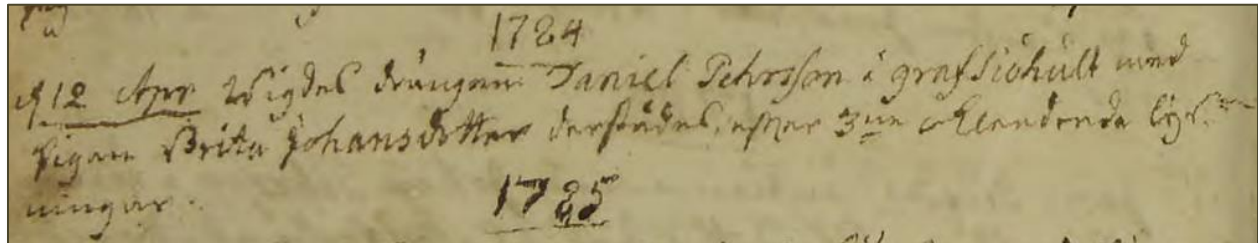 1784
d 12 Apr Wigdes drängen Daniel Pehrsson i grafsiöhult med
pigan Brita Johansdotter derstädes, efter 3ne lys-
ningar.
1785